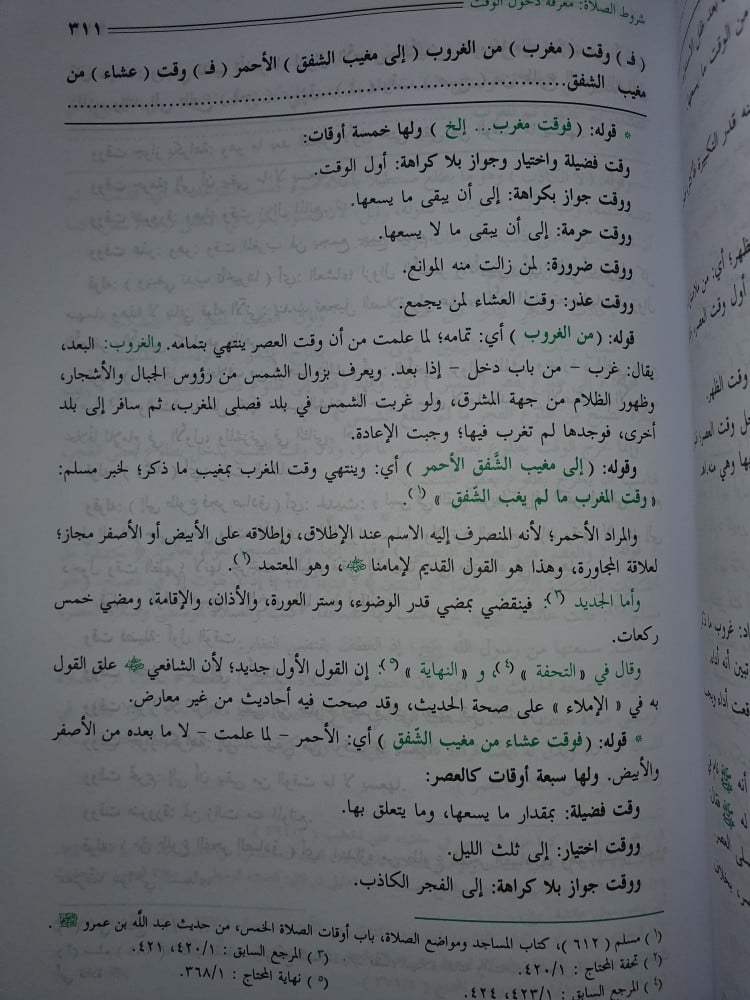 شروط الصلاة: معرفة دخول الوقت
٣١١
( فـ ) وقت ( مغرب ) من الغروب ( إلى مغيب الشفق ) الأحمر ( فـ ) وقت ( عشاء ) من
مغيب الشفق......................................................................
* قوله: ( فوقت مغرب... إلخ ) ولها خمسة أوقات:
وقت فضيلة واختيار وجواز بلا كراهة: أول الوقت.
ووقت جواز بكراهة: إلى أن يبقى ما يسعها.
ووقت حرمة: إلى أن يبقى ما لا يسعها.
ووقت ضرورة: لمن زالت منه الموانع.
ووقت عذر: وقت العشاء لمن يجمع.
قوله: ( من الغروب ) أي: تمامه؛ لما علمت من أن وقت العصر ينتهي بتمامه. والغروب: البعد،
يقال: غرب - من باب دخل - إذا بعد. ويعرف بزوال الشمس من رؤوس الجبال والأشجار،
وظهور الظلام من جهة المشرق، ولو غربت الشمس في بلد فصلى المغرب، ثم سافر إلى بلد
أخرى، فوجدها لم تغرب فيها؛ وجبت الإعادة.
وقوله: ( إلى مغيب الشَّفق الأحمر ) أي: وينتهي وقت المغرب بمغيب ما ذكر؛ لخبر مسلم:
« وقت المغرب ما لم يغب الشّفق » (١).
والمراد الأحمر؛ لأنه المنصرف إليه الاسم عند الإطلاق، وإطلاقه على الأبيض أو الأصفر مجاز؛
لعلاقة المجاورة، وهذا هو القول القديم لإمامنا ﵁، وهو المعتمد (٢).
وأما الجديد (٣). فينقضي بمضي قدر الوضوء، وستر العورة، والأذان، والإقامة، ومضي خمس
ركعات.
وقال في « التحفة » (٤)، و « النهاية » (٥). إن القول الأول جديد؛ لأن الشافعي ﵁ علق القول
به في « الإملاء » على صحة الحديث، وقد صحت فيه أحاديث من غير معارض.
* قوله: ( فوقت عشاء من مغيب الشّفق ) أي: الأحمر - لما علمت - لا ما بعده من الأصفر
والأبيض. ولها سبعة أوقات كالعصر:
وقت فضيلة: بمقدار ما يسعها، وما يتعلق بها.
ووقت اختيار: إلى ثلث الليل.
ووقت جواز بلا كراهة: إلى الفجر الكاذب.
(١) مسلم ( ٦١٢ )، كتاب المساجد ومواضع الصلاة، باب أوقات الصلاة الخمس، من حديث عبد اللَّه بن عمرو ﵁ .
(٢) تحفة المحتاج : ٤٢٠/١. (٣) المرجع السابق : ٤٢٠/١، ٤٢١.
(٤) المرجع السابق : ٤٢٣/١، ٤٢٤. (٥) نهاية المحتاج : ٣٦٨/١.